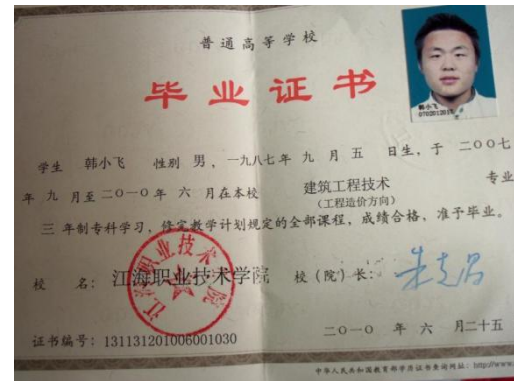 普通高等学校
毕业证书
韩小飞
学生 韩小飞 性别 男，一九八七年 九 月 五 日生，于 二〇〇七
年 九 月至 二〇一〇年 六 月在本校 建筑工程技术 专业
（工程造价方向）
三 年制专科学习，修完教学计划规定的全部课程，成绩合格，准予毕业。
校 名：江海职业技术学院 校（院）长：
江海职业技术学院
证书编号：131131201006001030 二〇一〇 年 六 月二十五
中华人民共和国教育部学历证书查询网址：http://www.